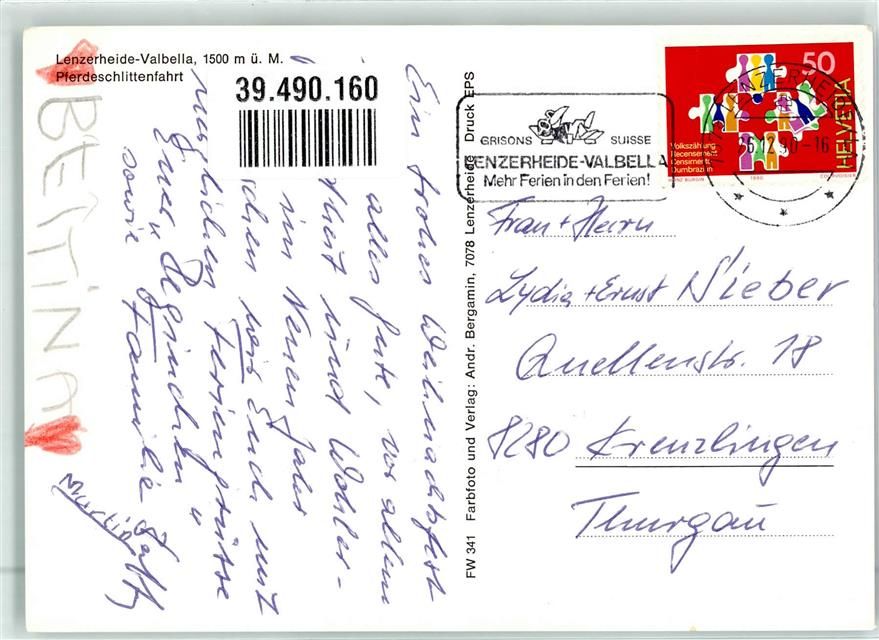 Lenzerheide-Valbella, 1500 m ü. M.
Pferdeschlittenfahrt
39.490.160
Ein frohes Weihnachtsfest
alles Gute, vor allem
und Wohler-
im Neuen Jahr
wir Euch mit
Feriengrüsse
Euer
sowie Familie
Martin
BETTINA
FW 341 Farbfoto und Verlag: Andr. Bergamin, 7078 Lenzerheide Druck EPS
GRISONS SUISSE
LENZERHEIDE-VALBELLA
Mehr Ferien in den Ferien!
50
HELVETIA
Volkszählung
Recensement
Censimento
Dumbraziun
1990
LENZERHEIDE
26.12.90-16
Frau + Herrn
Lydia + Ernst Nieber
Quellenstr. 18
8280 Kreuzlingen
Thurgau